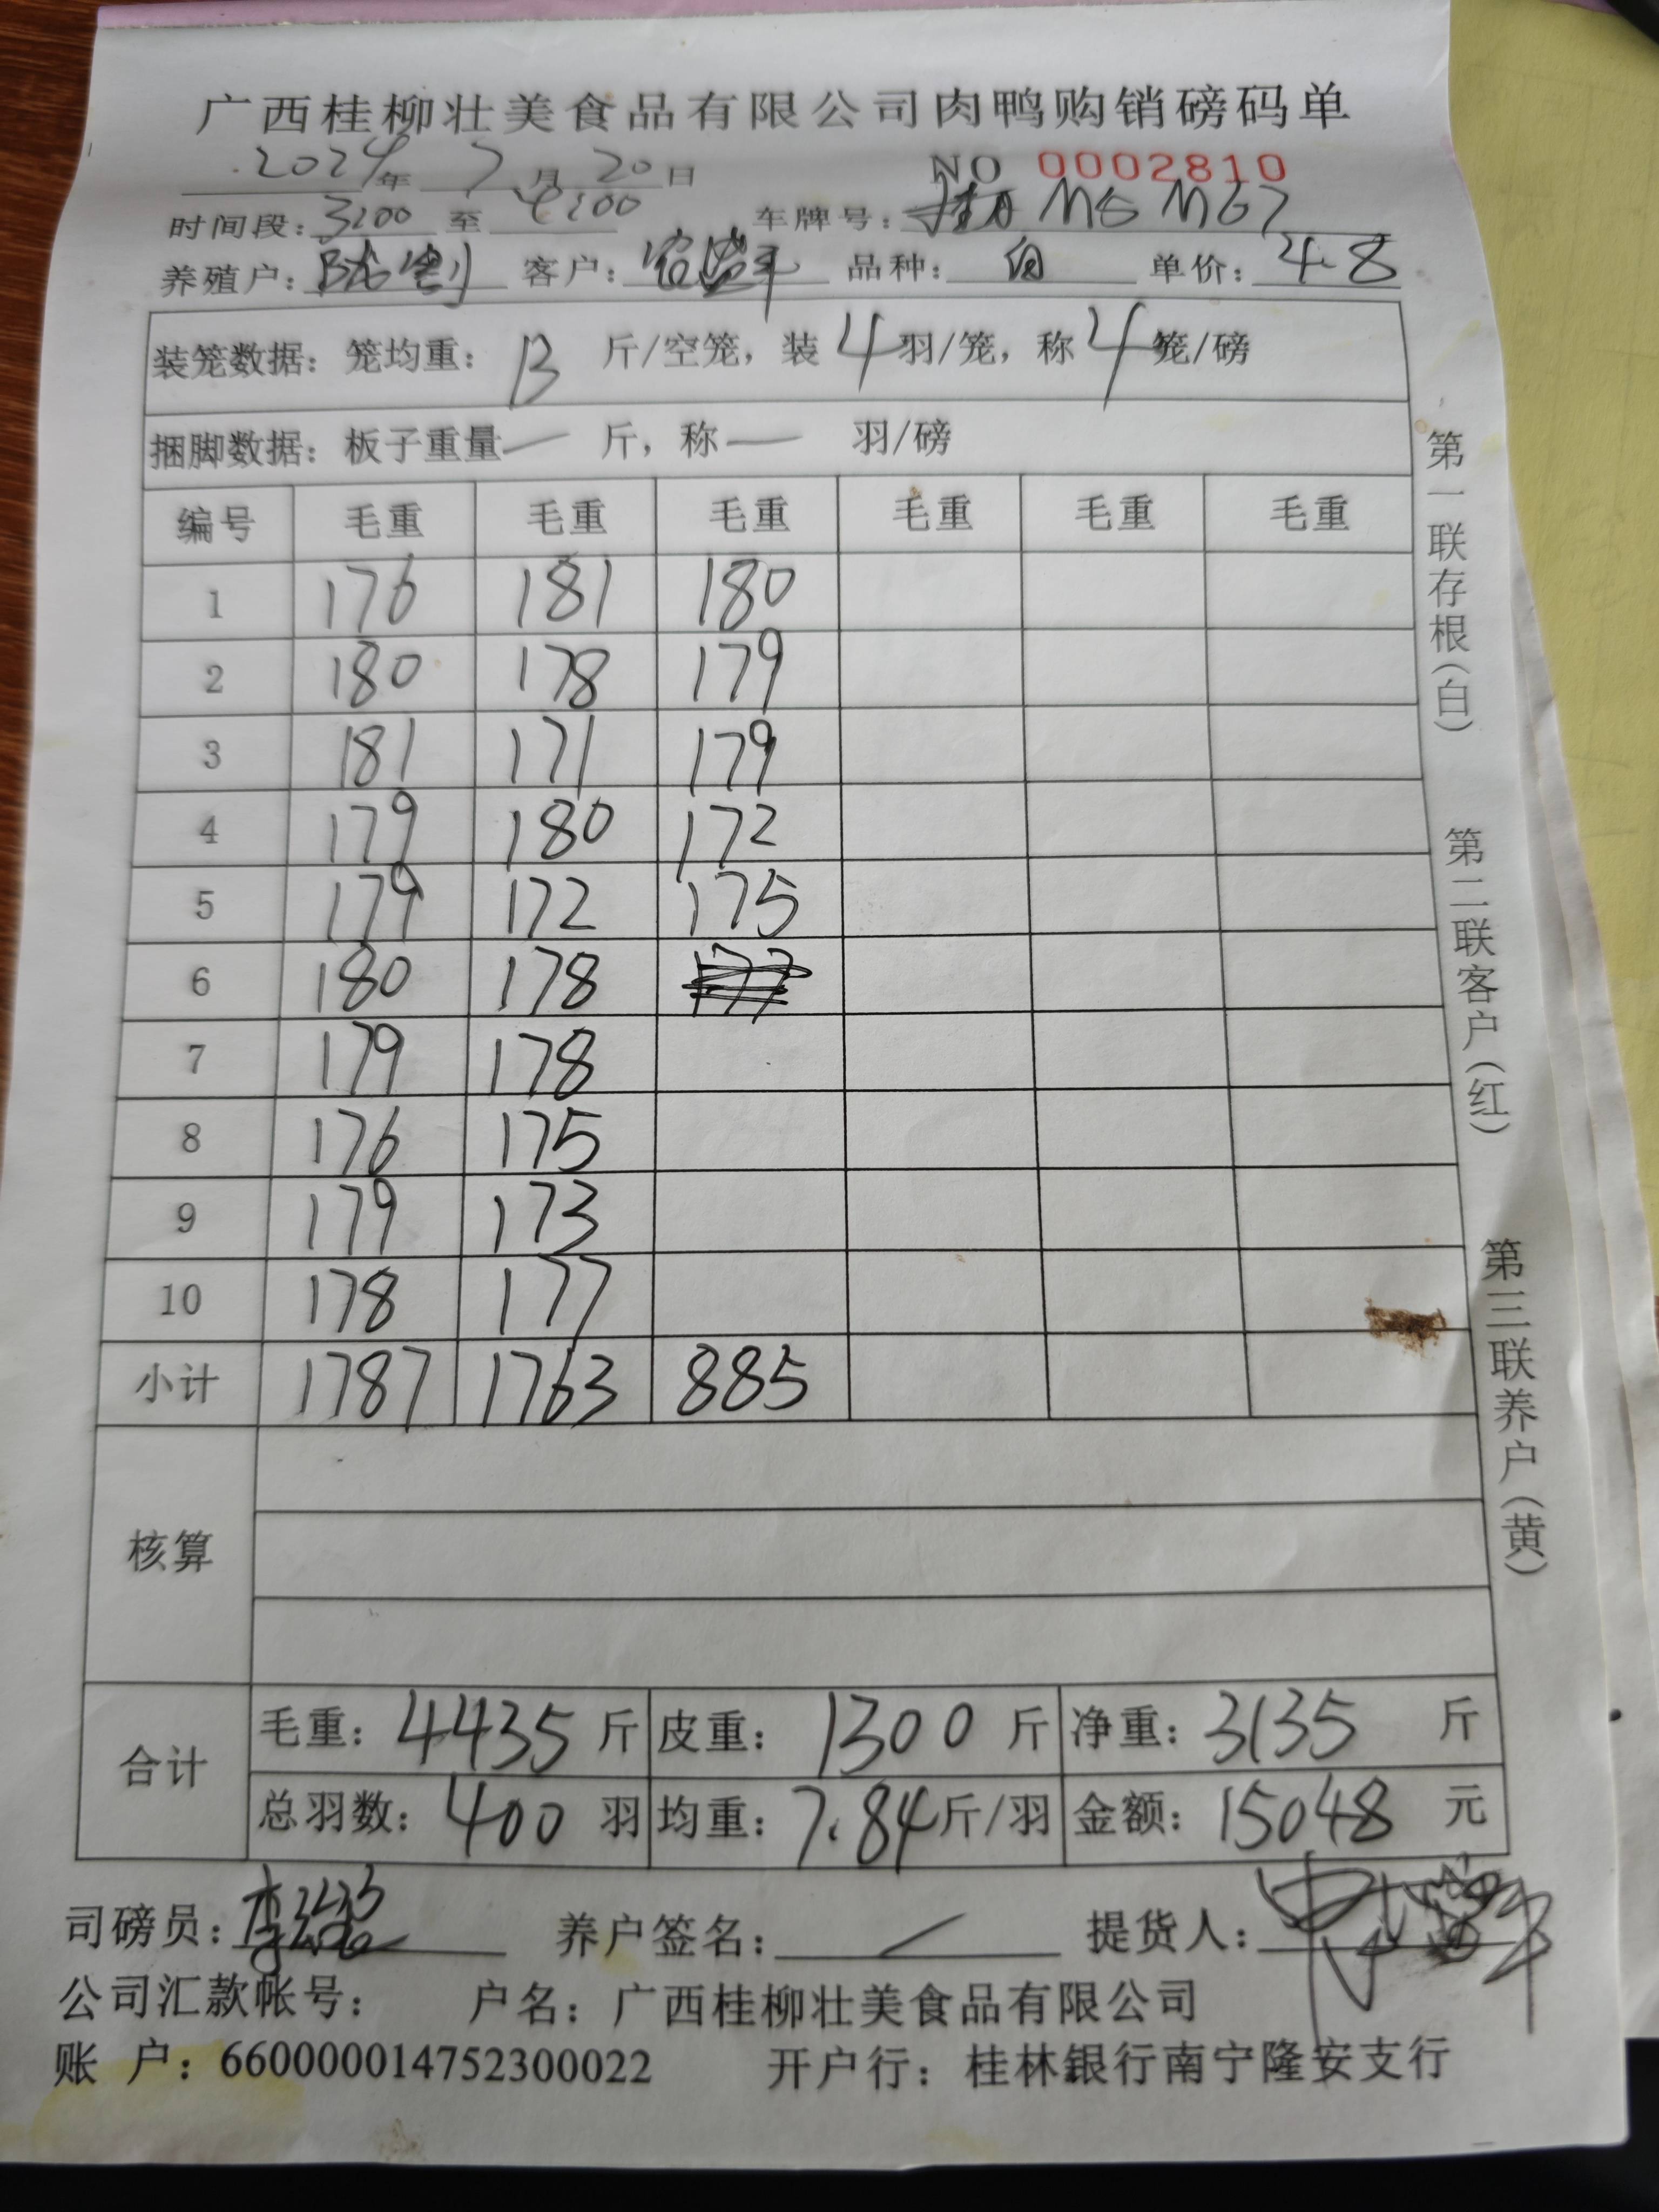 广西桂柳壮美食品有限公司肉鸭购销磅码单
2024年 7月 20日 NO 0002810
时间段: 3:00 至 4:00 车牌号: 桂A M5M67
养殖户: 客户: 品种: 白 单价: 4.8
装笼数据: 笼均重: 13 斤/空笼, 装 4 羽/笼, 称 4 笼/磅
捆脚数据: 板子重量 — 斤, 称 — 羽/磅
编号 毛重 毛重 毛重 毛重 毛重 毛重
1 176 181 180
2 180 178 179
3 181 171 179
4 179 180 172
5 179 172 175
6 180 178 177
7 179 178
8 176 175
9 179 173
10 178 177
小计 1787 1763 885
核算
合计 毛重: 4435 斤 皮重: 1300 斤 净重: 3135 斤
总羽数: 400 羽 均重: 7.84 斤/羽 金额: 15048 元
司磅员: 养户签名: 提货人:
公司汇款帐号: 户名: 广西桂柳壮美食品有限公司
账 户: 660000014752300022 开户行: 桂林银行南宁隆安支行
第一联存根(白)
第二联客户(红)
第三联养户(黄)